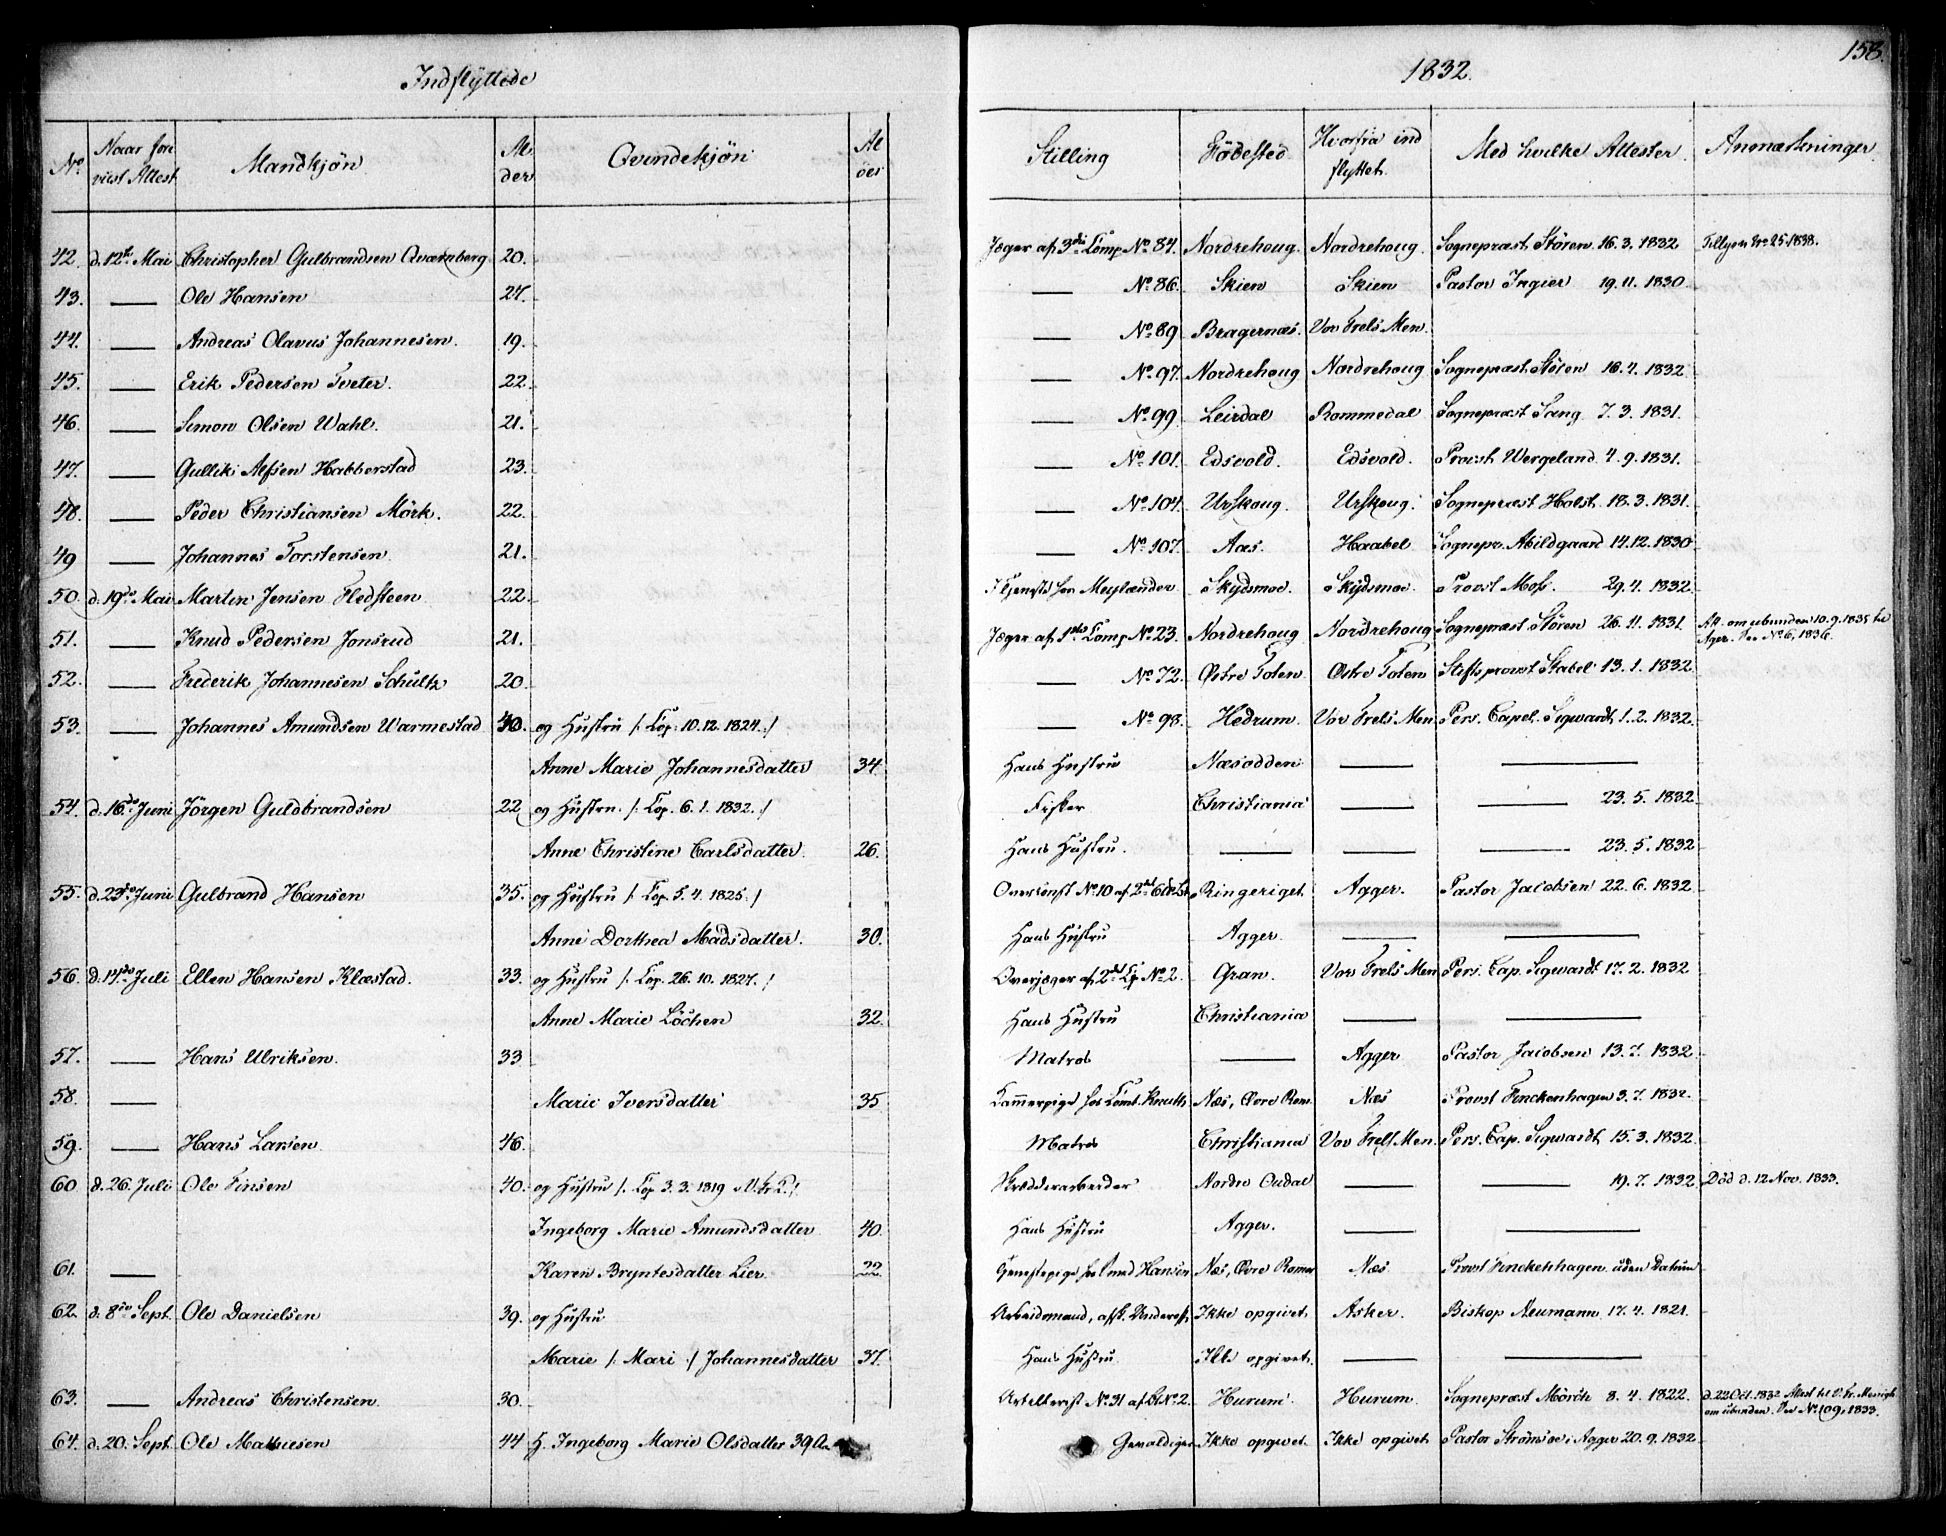 158.
Indflyttede
1832.
No. Naar fore viist Attest Mandkjøn Al der Qvindekjön Al der Stilling Födested Hvorfra ind flyttet. Med hvilke Attester. Anmærkninger.
42. d. 12te Mai Christopher Gulbrandsen Qværnberg 20. Jæger af 3die Comp No 84. Nordrehoug. Nordrehoug. Sognepræst Stören 16.3.1832 No 25 1838.
43. — Ole Hansen 27. — No. 86. Skien Skien Pastor Ingier 19.11.1830
44. — Andreas Olavus Johannesen. 19. — No. 89 Bragernæs. Vor Frels Men.
45. — Erik Pedersen Tveter. 22. — No. 97. Nordrehoug Nordrehoug Sognepræst Stören 16.4.1832
46. — Simon Olsen Wahl. 21. — No. 99 Leirdal Rommedal Sognepræst Sang 7.3.1831.
47. — Gullik Alfsen Habberstad 23. — No. 101. Edsvold. Edsvold. Provst Wergeland 4.9.1831.
48. — Peder Christiansen Mörk. 22. — No. 104. Urskoug. Urskoug. Sognepræst Holst 18.3.1831.
49 — Johannes Torstensen 21. — No. 107. Aas. Haabel Sognepr. Abildgaard 14.12.1830
50. d. 19de Mai Martin Jensen Fledsteen 22. I Tjeneste hos Meylænder Skydsmoe. Skydsmoe. Provst Moss. 29.4.1832.
51. — Knud Pedersen Jonsrud 21. Jæger af 1ste Comp No. 23. Nordrehoug Nordrehoug Sognepræst Stören 26.11.1831 Att. om ubunden 10.9.1835 til Ager. See No. 6, 1836.
52. — Frederik Johannesen Schultz 20. — No. 72. Østre Toten Østre Toten Stiftsprovst Stabel 13.1.1832
53. — Johannes Amundsen Warmestad 40. og Hustru /: Cop: 10.12.1824. :/ — No. 98. Hedrum. Vor Frels Men. Pers. Capel. Sigwardt 1.2.1832.
Anne Marie Johannesdatter 34 Hans Hustru Næsodden — —
54. d. 16de Juni Jörgen Guldbrandsen 22 og Hustru /: Cop. 6.1.1832. :/ Fisker Christiania — — 23.5.1832
Anne Christine Carlsdatter. 26. Hans Hustru. — — — 23.5.1832
55. d. 23de Juni Gulbrand Hansen 35. og Hustru /: Cop. 5.4.1825 :/ No. 10 af Ringeriget. Agger. Pastor Jacobsen 22.6.1832
Anne Dorthea Madsdatter. 30. Hans Hustru Agger. — —
56. d. 14de Juli Ellen Hansen Klæstad. 33. og Hustru /: Cop. 26.10.1827. :/ Overjæger af 2det Cp. No. 2. Gran. Vor Frels Men. Pers. Cap. Sigwardt 17.2.1832
Anne Marie Löchen 32. Hans Hustru Christiania — —
57. — Hans Ulriksen. 33 Matros — Agger Pastor Jacobsen 13.7.1832
58. — Marie Iversdatter 35 Kammerpige hos Knuth Næs, Övre Rom. Næs Provst Finckenhagen 3.7.1832.
59. — Hans Larsen 46. Matros Christiania Vor Frels Men. Pers. Cap. Sigwardt 15.3.1832.
60 d. 26. Juli Ole Finsen 40. og Hustru /: Cop 3.3.1819 Skrædderarbeider Nordre Oudal — — 19.7.1832 Död d. 12 Nov. 1833.
Ingeborg Marie Amundsdatter 40. Hans Hustru Agger. — —
61. — Karen Bryntesdatter Lier. 22. Hansen Næs, Övre Romer Næs Provst Finckenhagen uden Datum
62. d. 8de Sept. Ole Danielsen 39. og Hustru Arbeidsmand, Ikke opgivet Asker. Biskop Neumann 17.4.1821.
Marie /: Mari :/ Johannesdatter 37. Hans Hustru Ikke opgivet. — —
63. — Andreas Christensen. 30. No. 31 af Bt No 2. Hurum Hurum. Sognepræst Mörch 8.4.1822. d. 22 Oct. 1832 Attest til V. Fr. Menigh. om ubunden. See No. 109, 1833.
64. d. 20. Sept. Ole Mathiesen 44 H. Ingeborg Marie Olsdatter 39 Aar Gevaldiger Ikke opgivet. Ikke opgivet Pastor Strömsöe i Agger 20.9.1832